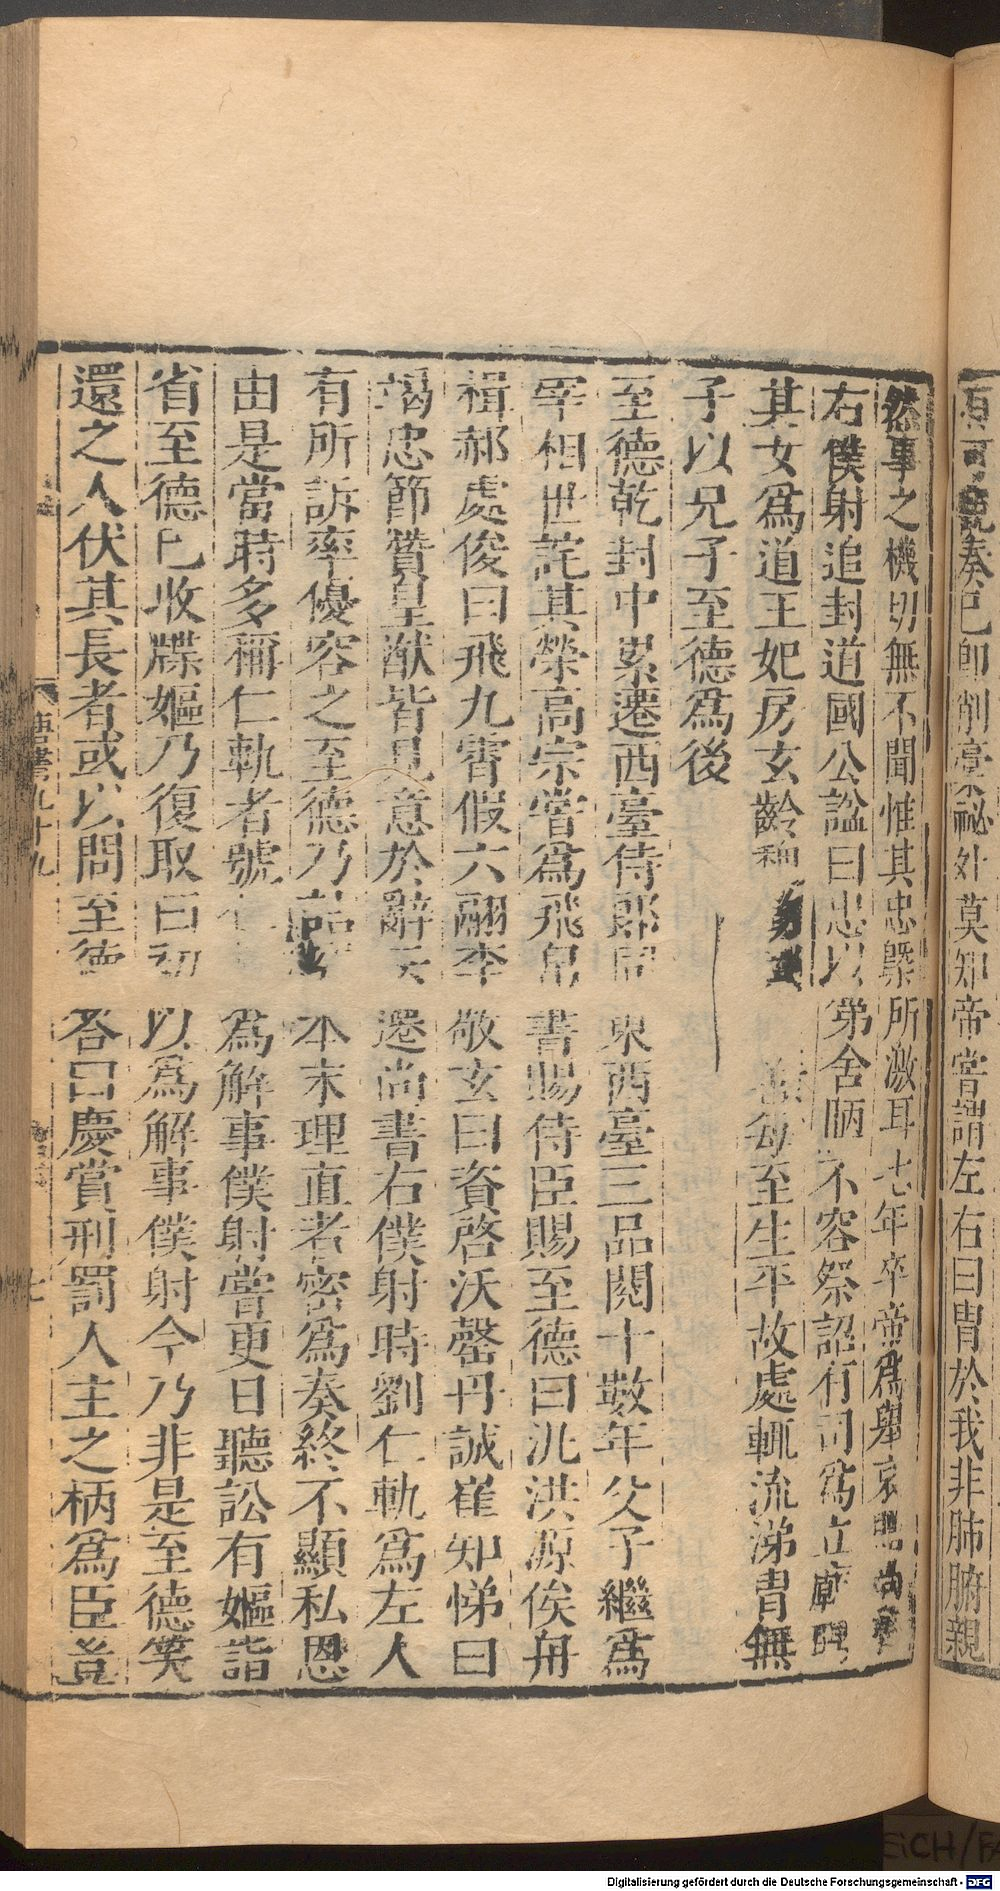 可觀奏已卽削藁祕外莫知帝嘗謂左右曰胄於我非肺腑親
然事之機切無不聞惟其忠槩所激耳七年卒帝爲舉哀
右僕射追封道國公諡曰忠以第舍陋不容祭詔有司爲立廟
其女爲道王妃房玄齡每至生平故處輒流涕胄無
子以兄子至德爲後
至德乾封中累遷西臺侍郎同東西臺三品閱十數年父子繼爲
宰相世詫其榮高宗嘗爲飛帛書賜侍臣賜至德曰汎洪源俟舟
楫郝處俊曰飛九霄假六翮李敬玄曰資啓沃罄丹誠崔知悌曰
竭忠節贊皇猷皆見意於辭云遷尚書右僕射時劉仁軌爲左人
有所訴率優容之至德乃詰本末理直者密爲奏終不顯私恩
由是當時多稱仁軌者號爲解事僕射嘗更日聽訟有嫗詣
省至德已收牒嫗乃復取曰初以爲解事僕射今乃非是至德笑
還之人伏其長者或以問至德荅曰慶賞刑罰人主之柄爲臣豈
唐書九十九
七
Digitalisierung gefördert durch die Deutsche Forschungsgemeinschaft - DFG